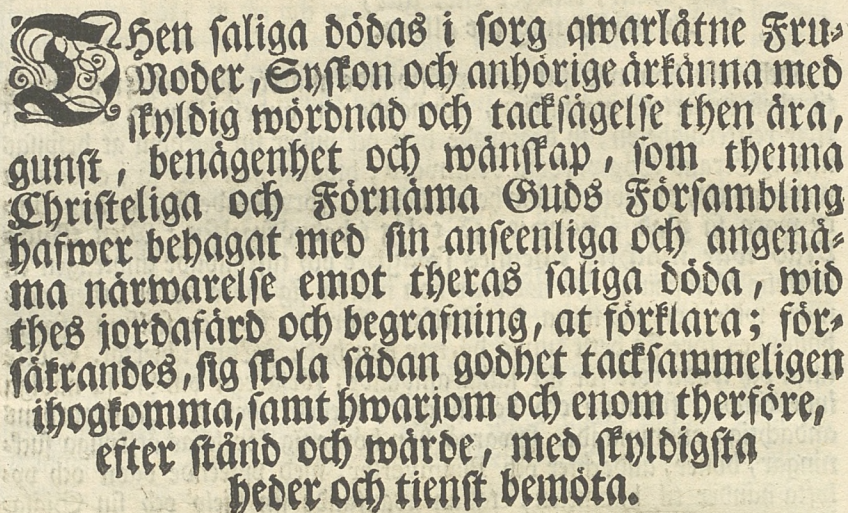 THen saliga dödas i sorg qwarlåtne Fru-
Moder, Syskon och anhörige ärkänna med
skyldig wördnad och tacksägelse then ära,
gunst, benägenhet och wänskap, som thenna
Christeliga och Förnäma Guds Försambling
hafwer behagat med sin anseenliga och angenä-
ma närwarelse emot theras saliga döda, wid
thes jordafärd och begrafning, at förklara; för-
säkrandes, sig skola sådan godhet tacksammeligen
ihogkomma, samt hwarjom och enom therföre,
efter stånd och wärde, med skyldigsta
heder och tienst bemöta.